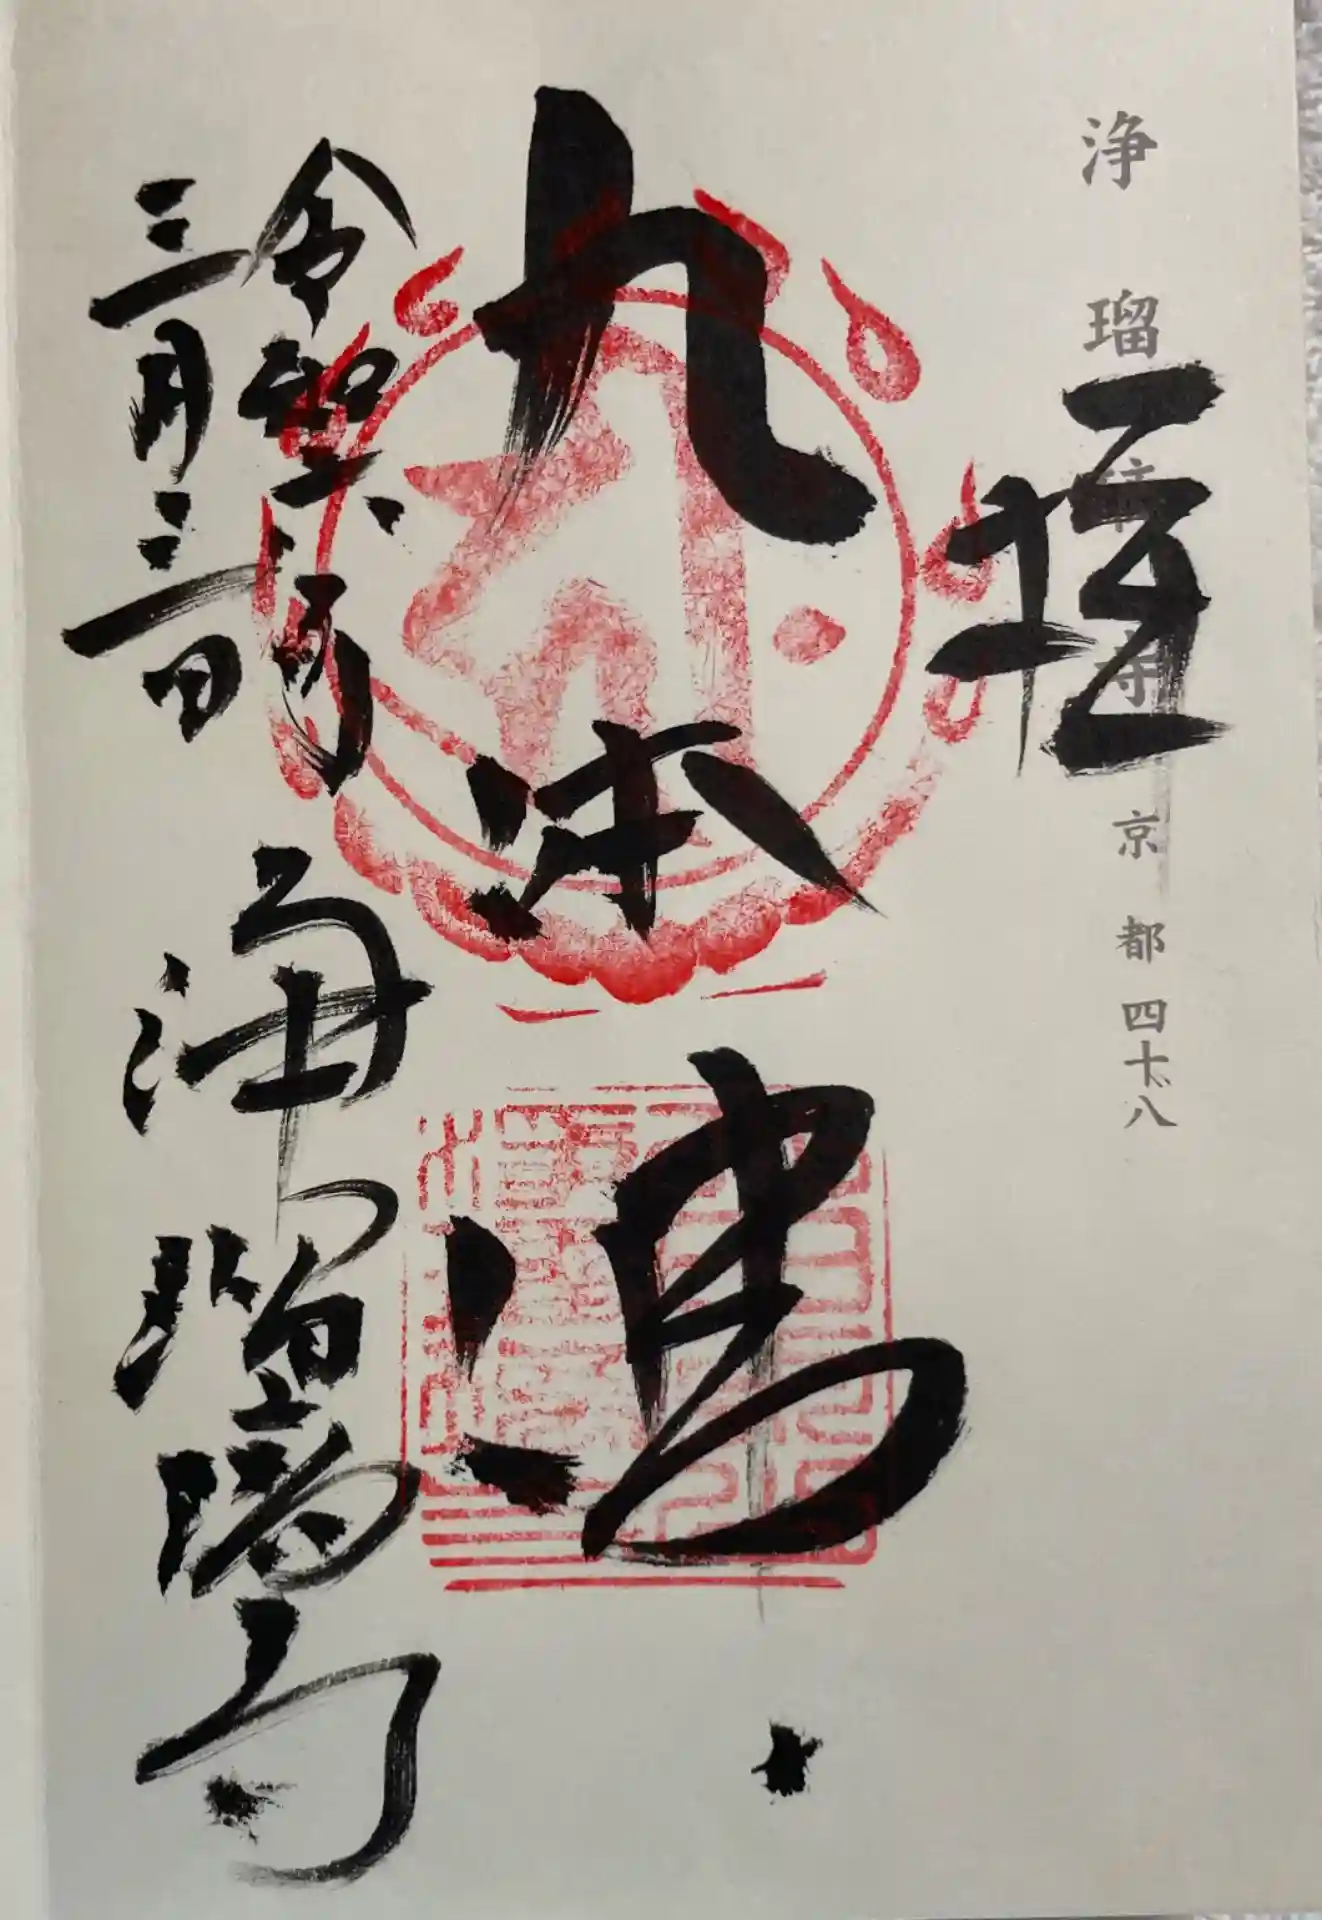 浄瑠璃寺 京都四十八
奉拝
九体佛
令和六年
三月三日
浄瑠璃寺